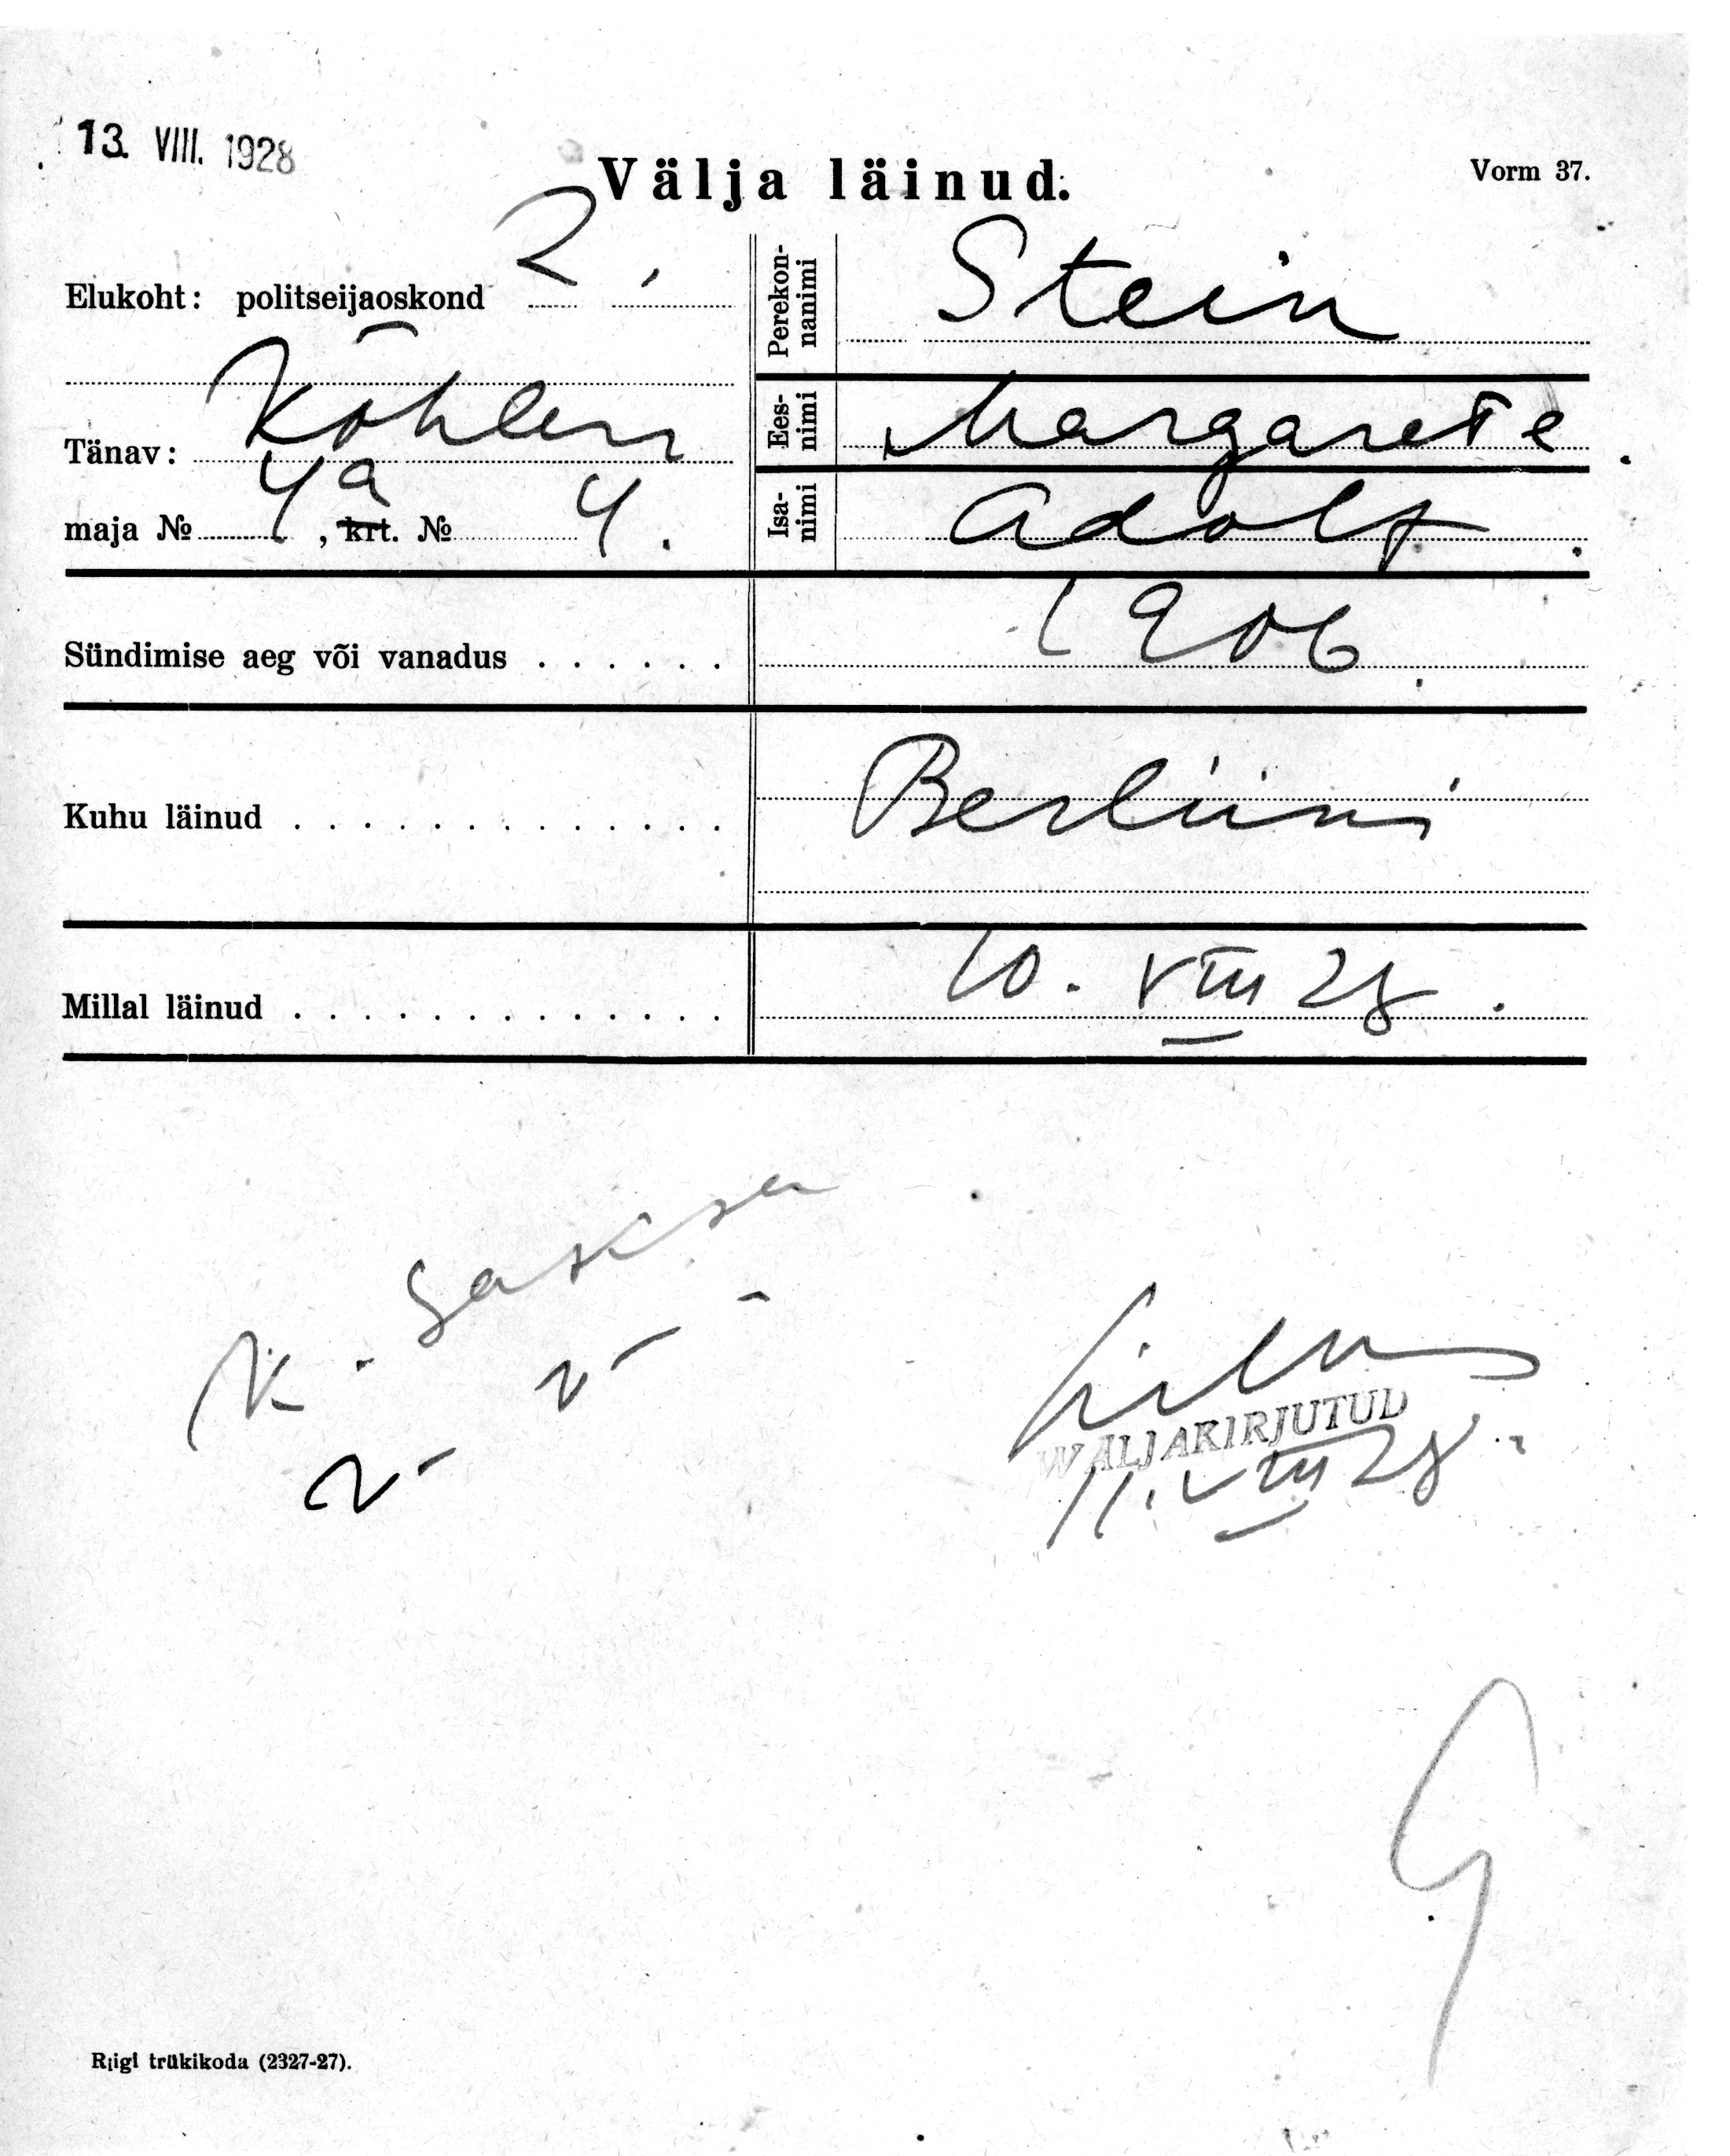 13. VIII. 1928
Välja läinud.
Vorm 37.
Elukoht: politseijaoskond 2.
Tänav: Köhleri
maja № 4a, krt. № 4.
Perekon-
nanimi
Stein
Ees-
nimi
Margarete.
Isa-
nimi
Adolf.
Sündimise aeg või vanadus . . . . . . 1906.
Kuhu läinud . . . . . . . . . . . . . Berliini
Millal läinud . . . . . . . . . . . . . 10. VIII 28.
K.
WÄLJAKIRJUTUD
11. VIII 28.
Riigi trükikoda (2327-27).